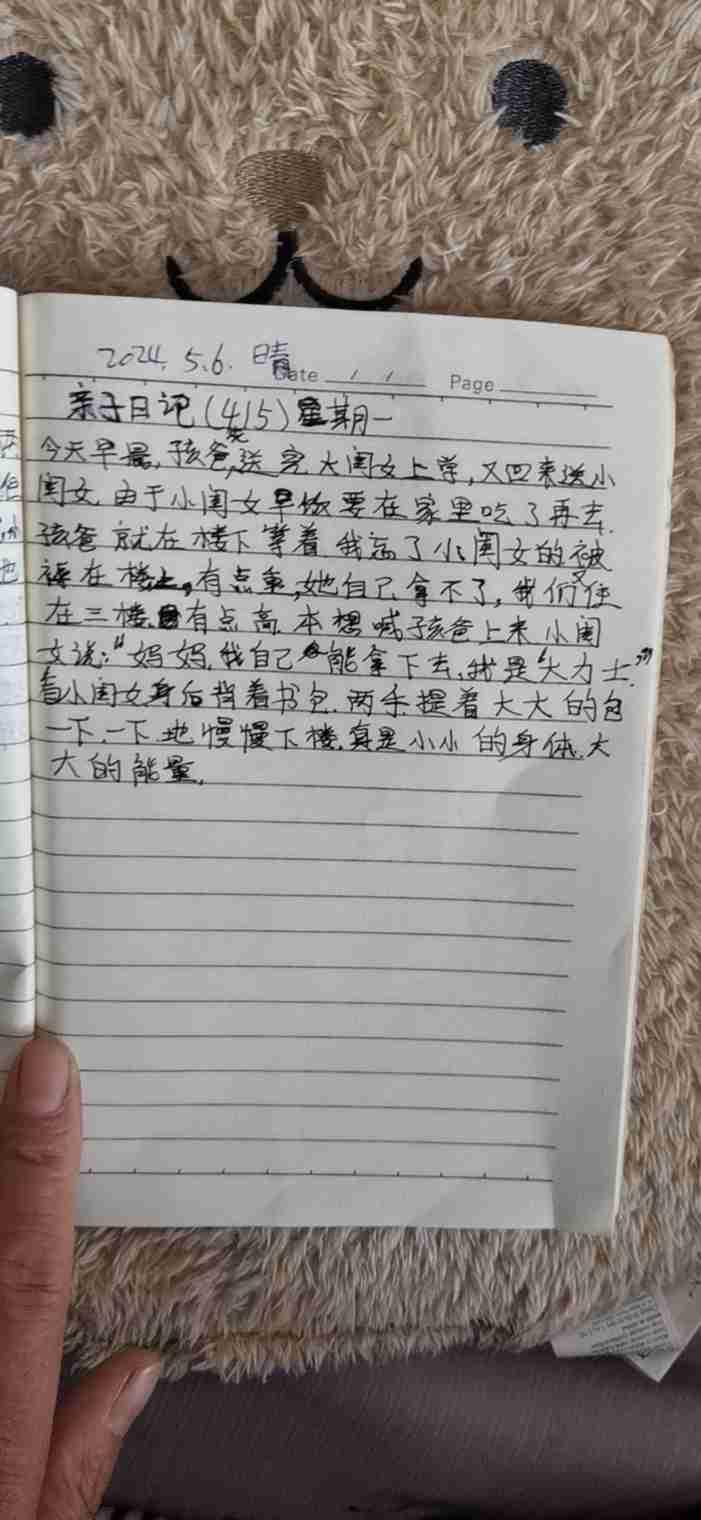 2024.5.6.晴
Date / / Page
亲子日记(415)星期一
今天早晨,孩爸先送完大闺女上学,又回来送小
闺女.由于小闺女早饭要在家里吃了再去.
孩爸就在楼下等着.我忘了小闺女的被
褥在楼上,有点重,她自己拿不了,我们又住
在三楼有点高.本想喊孩爸上来.小闺
女说:“妈妈.我自己能拿下去,我是“大力士.””
看小闺女身后背着书包.两手提着大大的包
一下.一下.地慢慢下楼.真是小小的身体.大
大的能量.